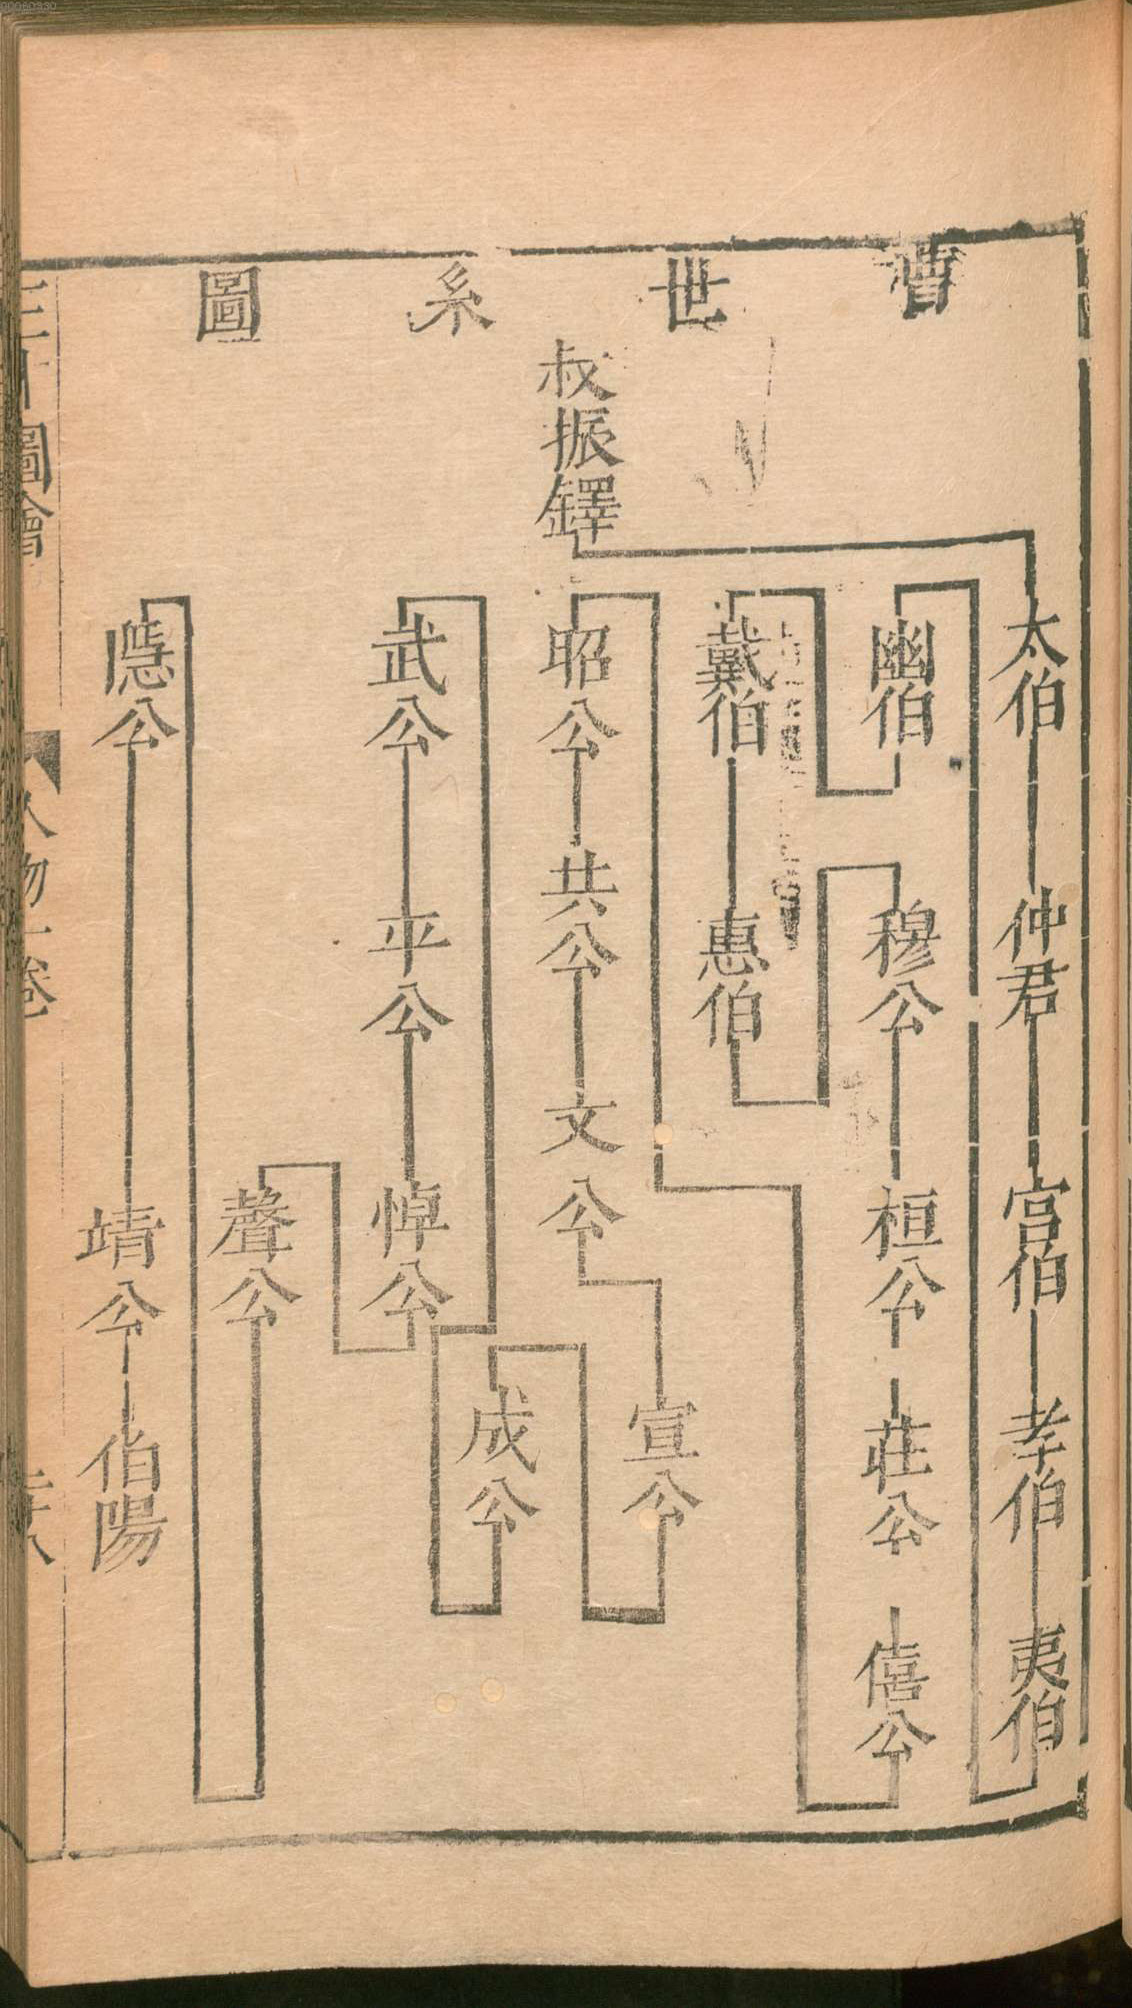 曹世系圖
叔振鐸
太伯 仲君 宫伯 孝伯 夷伯
幽伯
穆公 桓公 莊公 僖公
戴伯 惠伯
昭公 共公 文公
宣公
成公
武公 平公 悼公
聲公
隱公 靖公 伯陽
圖會
人物一卷
00080330